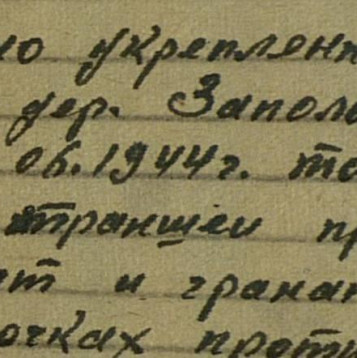 но укреплени
дер. Заполь
06.1944г. то
траншеи пр
ит и гранат
очках проти